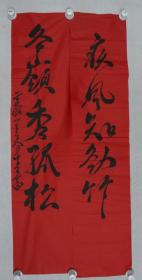 疾风知劲竹
冬岭秀孤松